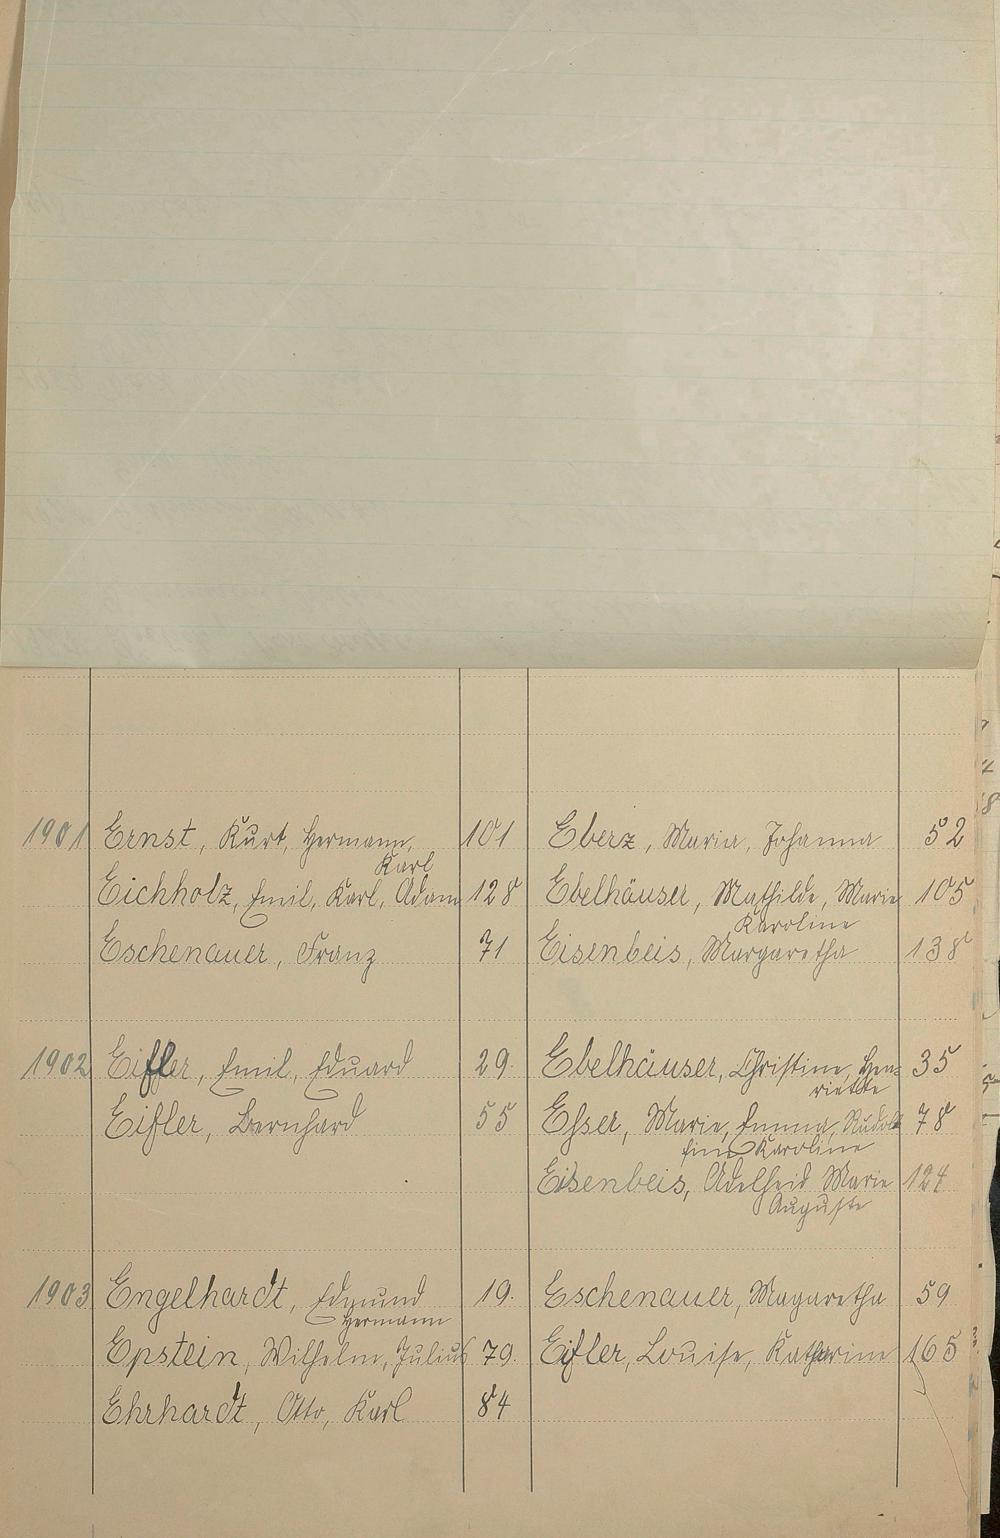 1901 Ernst, Kurt, Hermann, 101 Eberz, Maria, Johanna 52
Karl
Eichholz, Emil, Karl, Adam 128 Ebelhäuser, Mathilde, Marie 105
Karoline
Eschenauer, Franz 71 Eisenbeis, Margaretha 138
1902 Eifler, Emil, Eduard 29. Ebelhäuser, Christine, Hen=35
riette
Eifler, Bernhard 55 Esser, Marie, Emma, Rudol 78
fine Karoline
Eisenbeis, Adelheid Marie 124
Auguste
1903 Engelhardt, Edmund 19. Eschenauer, Magaretha 59
Hermann
Epstein, Wilhelm, Julius 79. Eifler, Louise, Katharine 165
Ehrhardt, Otto, Karl 84